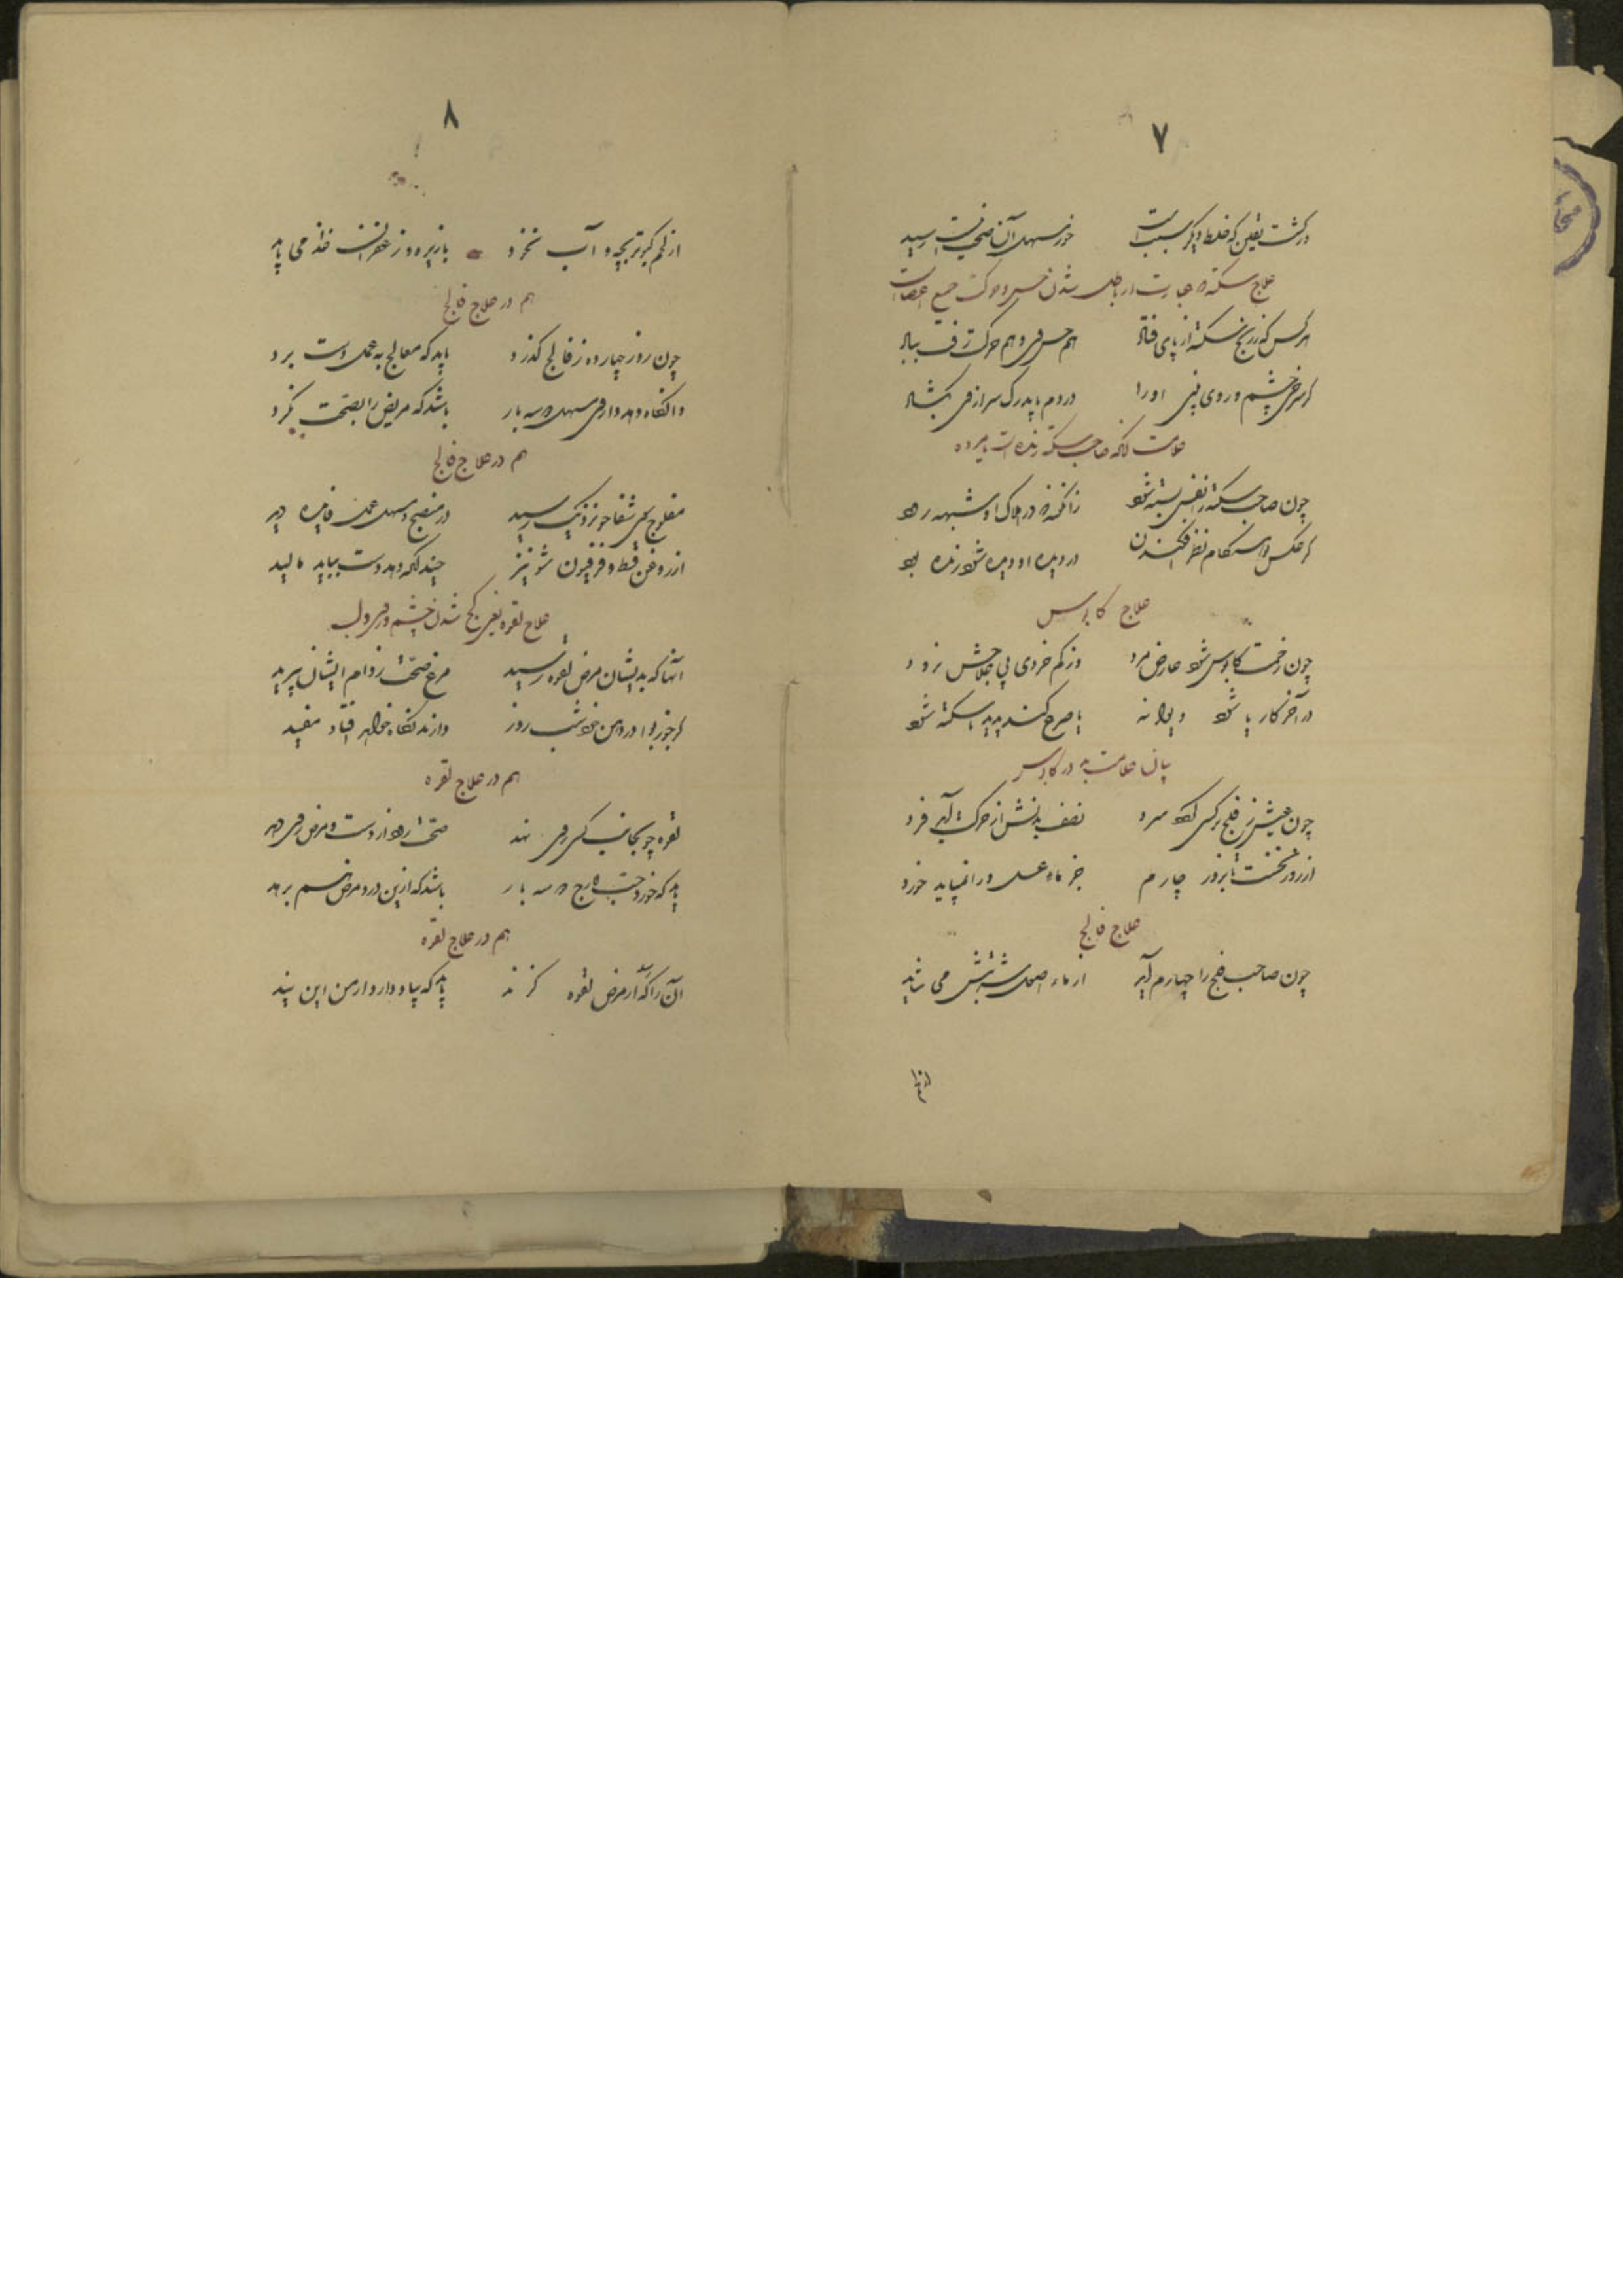 ۷
در گشت یقین که خلط دیگر سبب است
خور مسهل آن
علاج سکته و عبارت از باطل شدن حس و حرکت جمیع اعضاست
هر کس که ز رنج سکته از پای فتاد
هم حس وی و هم حرکت رفت بباد
گر سرخی چشم و روی بینی او را
در دم باید رگ سر از وی بگشاد
علامت آنکه صاحب سکته زنده است یا مرده
چون صاحب سکته را نفس بسته شود
زانگونه که در هلاک او شبهه رود
گر عکس در هنگام نظر افکندن
در دیده او دیده شود زنده بود
علاج کابوس
چون زحمت کابوس شود عارض مرد
وز کم خردی پی علاجش نرود
در آخر کار یا شود دیوانه
یا صرع کند پدید یا سکته شود
بیان علامت بد در کابوس
چون عیش ز فلج بر کسی گردد سرد
نصف بدنش از حرکت آید فرد
از روز نخست تا بروز چارم
جز ماء عسل ورا نمیباید خورد
علاج فالج
چون صاحب فلج را چهارم آید
از ماء اصول شربتش می شاید
۸
از لحم کبوتر بچه و آب نخود
با زیره و زعفران غذا می باید
هم در علاج فالج
چون روز چهارده ز فالج گذرد
باید که معالج به عمل دست برد
وانگاه دهد داروی مسهل دو سه بار
باشد که مریض را بصحت نگرد
هم در علاج فالج
مفلوج بحی شفا چو نزدیک رسید
در منضج و مسهل عمل فایده دید
از روغن قسط و فرفیون شونیز
چند آنکه دهد دست بباید مالید
علاج لقوه یعنی کج شدن چشم و روی و لب
آنها که بدیشان مرض لقوه رسید
مرغ صحت ز دام ایشان پرید
گر جوز بوا در دهن خود شب و روز
دارند نگاه خواهد افتاد مفید
هم در علاج لقوه
لقوه چو بجانب کسی روی نهد
صحت رود از دست و مرض روی دهد
باید که خورد حب ایارج دو سه بار
باشد که ازین درد و مرض هم برهد
هم در علاج لقوه
آن را که از مرض لقوه گزند
باید که بیاد دارد از من این پند